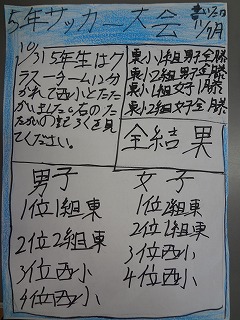 5年サッカー大会
10/31 5年生はク
ラスーチームに分
かれて西小とたた
かいました。右の
たたかいの記ろくを見
てください。
東小1組男子全勝
東小2組男子全勝
東小2組女子全勝
東小1組女子1勝
全結果
男子
1位1組東
2位2組東
3位西小
4位西小
女子
1位2組東
2位1組東
3位西小
4位西小